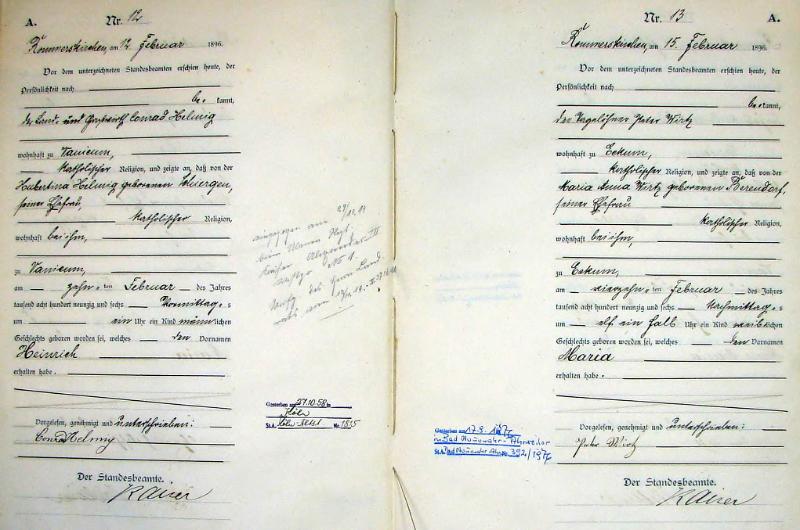 A.
Nr. 12
Rommerskirchen, am 12 Februar 1896.
Vor dem unterzeichneten Standesbeamten erschien heute, der
Persönlichkeit nach
be kannt,
der Land- und Gastwirth Conrad Helmig
wohnhaft zu Vanicum,
katholischer Religion, und zeigte an, daß von der
Hubertina Helmig geborenen
seiner Ehefrau,
katholischer Religion,
wohnhaft bei ihm,
zu Vanicum,
am zehn ten Februar des Jahres
tausend acht hundert neunzig und sechs Vormittags
um ein Uhr ein Kind männlichen
Geschlechts geboren worden sei, welches den Vornamen
Heinrich
erhalten habe.
Vorgelesen, genehmigt und unterschrieben:
Conrad Helmig
Der Standesbeamte.
Kaiser
Gestorben am 27.10.58 in
Köln
St.A. Köln Nr. 1815
Nr. 13
A.
Rommerskirchen, am 15. Februar 1896.
Vor dem unterzeichneten Standesbeamten erschien heute, der
Persönlichkeit nach
be kannt,
der Tagelöhner Peter Wirtz
wohnhaft zu Eckum,
katholischer Religion, und zeigte an, daß von der
Maria Anna Wirtz geborenen Berendorf,
seiner Ehefrau
katholischer Religion,
wohnhaft bei ihm,
zu Eckum,
am vierzehn ten Februar des Jahres
tausend acht hundert neunzig und sechs Nachmittags
um elf ein halb Uhr ein Kind weiblichen
Geschlechts geboren worden sei, welches den Vornamen
Maria
erhalten habe.
Vorgelesen, genehmigt und unterschrieben:
Peter Wirtz
Der Standesbeamte.
Kaiser
Gestorben am 17.9.1977
in Bad Neuenahr-Ahrweiler
St.A. Bad Neuenahr-Ahrw. 392/1977